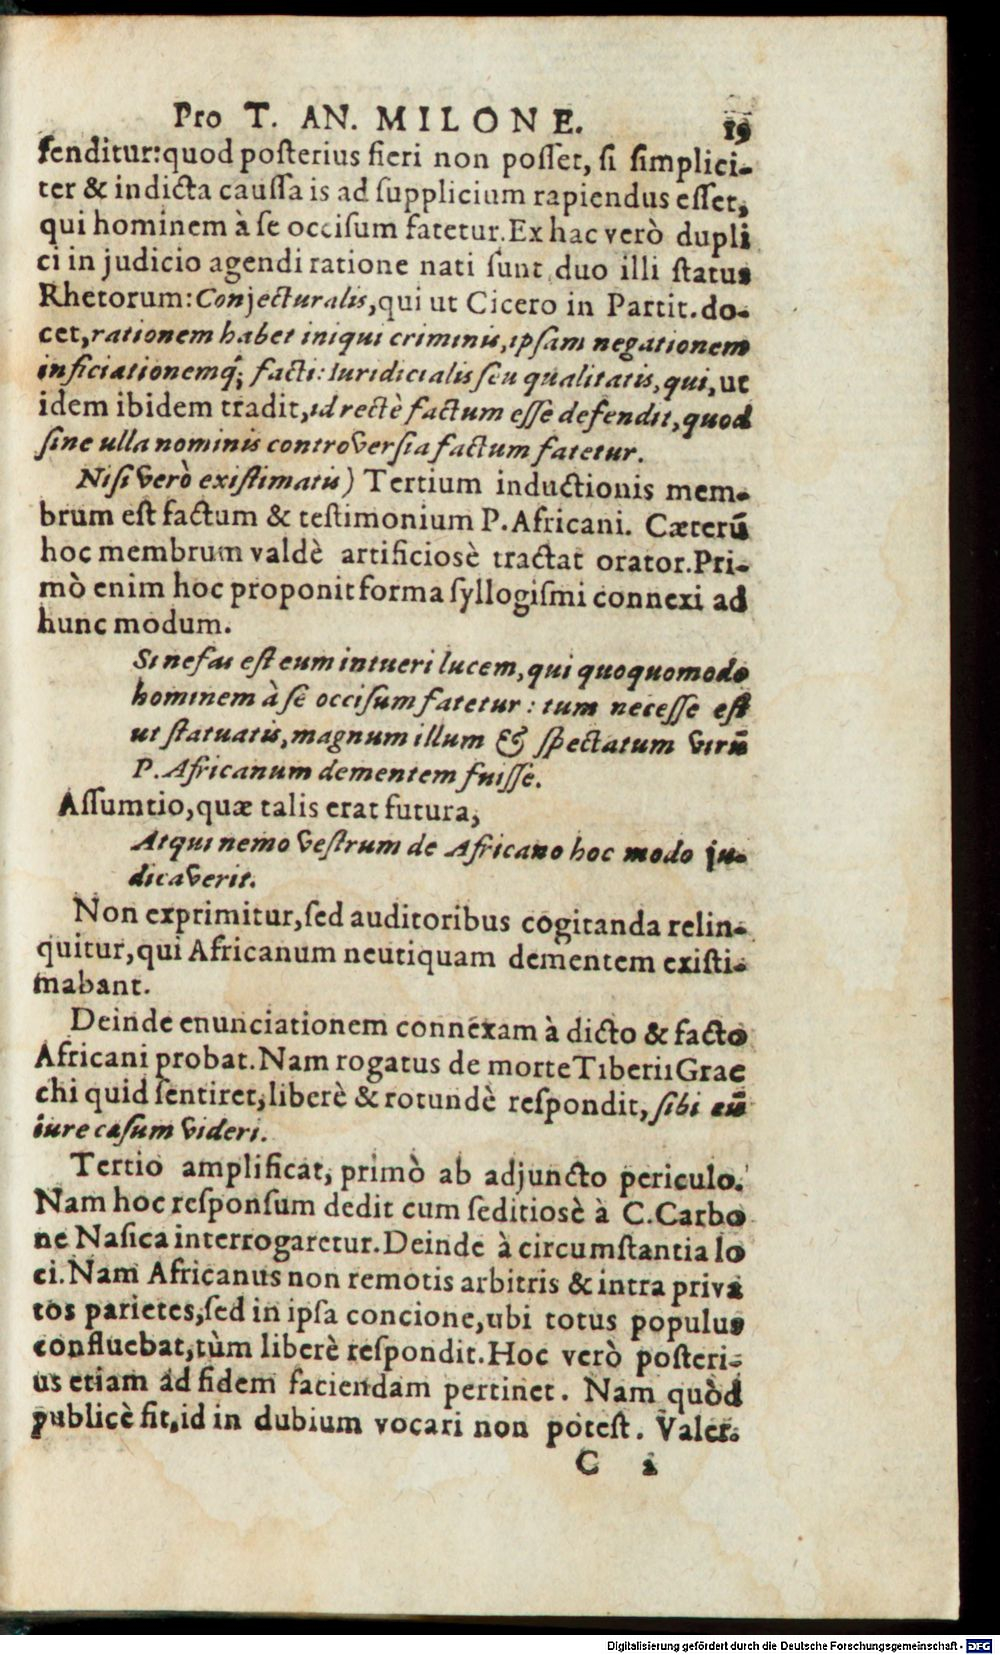 Pro T. AN. MILONE. 19
fenditur:quod posterius fieri non posset, si simplici-
ter & indicta caussa is ad supplicium rapiendus esset,
qui hominem à se occisum fatetur.Ex hac verò dupli
ci in judicio agendi ratione nati sunt duo illi status
Rhetorum:Conjecturalis,qui ut Cicero in Partit.do-
cet,rationem habet iniqui criminis,ipsam negationem
inficiationemq́; facti:Iuridicialis seu qualitatis,qui,ut
idem ibidem tradit,id rectè factum esse defendit,quod
sine ulla nominis controversia factum fatetur.
Nisi verò existimatis) Tertium inductionis mem-
brum est factum & testimonium P.Africani. Cæterū
hoc membrum valdè artificiosè tractat orator.Pri-
mò enim hoc proponit forma syllogismi connexi ad
hunc modum.
Si nefas est eum intueri lucem,qui quoquomodo
hominem à se occisum fatetur: tum necesse est
ut statuatis,magnum illum & spectatum virū
P.Africanum dementem fuisse.
Assumtio,quæ talis erat futura,
Atqui nemo vestrum de Africano hoc modo ju-
dicaverit.
Non exprimitur,sed auditoribus cogitanda relin-
quitur,qui Africanum neutiquam dementem existi-
mabant.
Deinde enunciationem connexam à dicto & facto
Africani probat.Nam rogatus de morte Tiberii Grac
chi quid sentiret,liberè & rotundè respondit,sibi eū
iure cæsum videri.
Tertio amplificat, primò ab adjuncto periculo.
Nam hoc responsum dedit cum seditiosè à C.Carbo
ne Nasica interrogaretur.Deinde à circumstantia lo
ci.Nam Africanus non remotis arbitris & intra priva
tos parietes,sed in ipsa concione,ubi totus populus
confluebat,tùm liberè respondit.Hoc verò posteri-
us etiam ad fidem faciendam pertinet. Nam quòd
publicè fit,id in dubium vocari non potest. Valer.
C 2
Digitalisierung gefördert durch die Deutsche Forschungsgemeinschaft - DFG